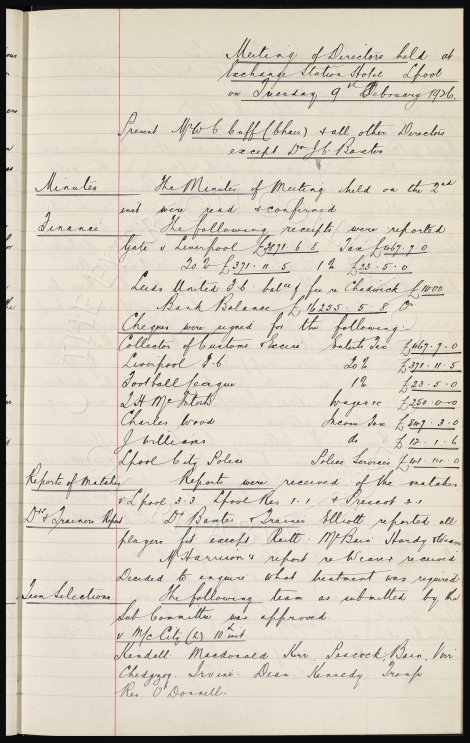 Meeting of Directors held at
Exchange Station Hotel Lpool
on Tuesday 9th February 1926.
Present Mr W C Cuff (Chair) & all other Directors
except Dr J C Baxter
Minutes The Minutes of Meeting held on the 2nd
inst were read & confirmed
Finance The following receipts were reported
Gate v Liverpool £2071. 6. 8 Tax £467. 9. 0
20% £371. 11. 5. 1% £23. 5. 0
Leeds United F C bal of fee re Chadwick £1000
Bank Balance £16255. 5. 8 Cr
Cheques were signed for the following:-
Collector of Customs & Excise Entets Tax £467. 9. 0
Liverpool F C 20% £371. 11. 5
Football League 1% £23. 5. 0
T H McIntosh Wages &c £250. 0. 0
Charles Wood Income Tax 3. 0
J Williams do £12. 1. 6
Lpool City Police Police Services
Reports of Matches Reports were received of the matches
v Lpool 3.3 Lpool Res 1.1 & Prescot
Drs & Trainers Report Dr Baxter & Trainer Elliott reported all
players fit except Raitt. McBain Hardy & Weaver
Mr Harrison's report re Weaver received
Decided to enquire what treatment was required
Team Selections The following team as submitted by the
Sub Committee was approved.
v M/c City (h) 10th inst
Kendall. Macdonald Kerr. Peacock. Bain. Virr
Chedgzoy. Irvine. Dean. Kennedy. Troup
Res O'Donnell.